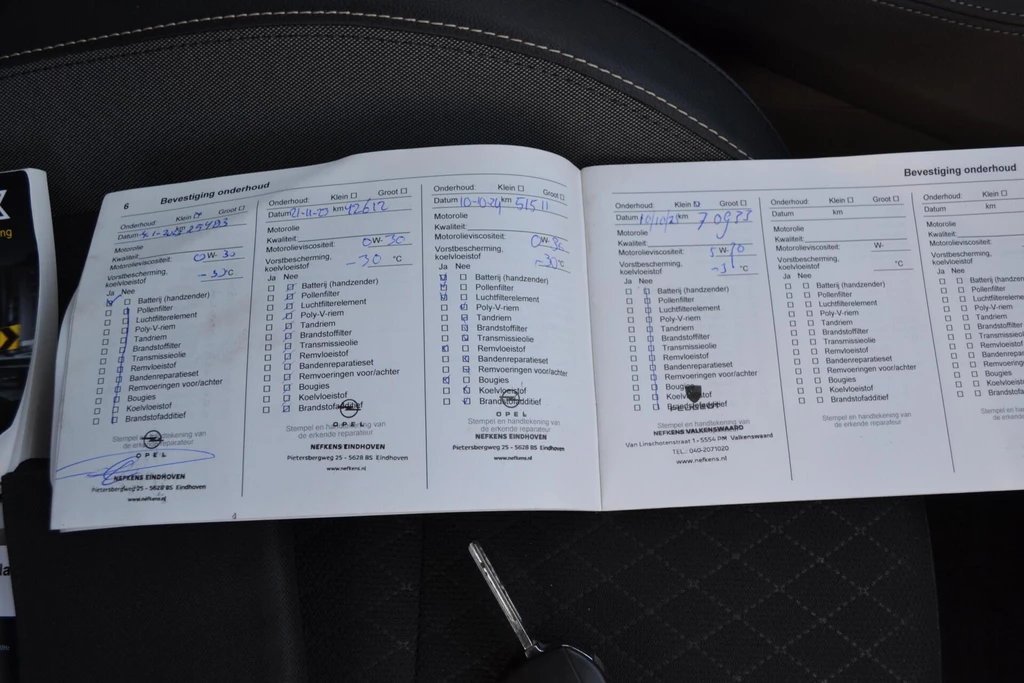 6 Bevestiging onderhoud
Onderhoud: Klein Groot
Datum km 25483
Motorolie
Kwaliteit
Motorolieviscositeit: 0W-30
Vorstbescherming, koelvloeistof -30 °C
Ja Nee
Batterij (handzender)
Pollenfilter
Luchtfilterelement
Poly-V-riem
Tandriem
Brandstoffilter
Transmissieolie
Remvloeistof
Bandenreparatieset
Remvoeringen voor/achter
Bougies
Koelvloeistof
Brandstofadditief
Stempel en handtekening van
de erkende reparateur
OPEL
NEFKENS EINDHOVEN
Pietersbergweg 25 - 5628 BS Eindhoven
www.nefkens.nl
Onderhoud: Klein Groot
Datum 21-11-23 km 42612
Motorolie
Kwaliteit
Motorolieviscositeit: 0W-30
Vorstbescherming,
koelvloeistof -30 °C
Ja Nee
Batterij (handzender)
Pollenfilter
Luchtfilterelement
Poly-V-riem
Tandriem
Brandstoffilter
Transmissieolie
Remvloeistof
Bandenreparatieset
Remvoeringen voor/achter
Bougies
Koelvloeistof
Brandstofadditief
OPEL
Stempel en handtekening van
de erkende reparateur
NEFKENS EINDHOVEN
Pietersbergweg 25 - 5628 BS Eindhoven
www.nefkens.nl
Onderhoud: Klein Groot
Datum 10-10-24 km 51511
Motorolie
Kwaliteit:
Motorolieviscositeit: 0W-30
Vorstbescherming,
koelvloeistof -30 °C
Ja Nee
Batterij (handzender)
Pollenfilter
Luchtfilterelement
Poly-V-riem
Tandriem
Brandstoffilter
Transmissieolie
Remvloeistof
Bandenreparatieset
Remvoeringen voor/achter
Bougies
Koelvloeistof
Brandstofadditief
OPEL
Stempel en handtekening van
de erkende reparateur
NEFKENS EINDHOVEN
Pietersbergweg 25 - 5628 BS Eindhoven
www.nefkens.nl
Bevestiging onderhoud
Onderhoud: Klein Groot
Datum km 70933
Motorolie
Kwaliteit:
Motorolieviscositeit: W
Vorstbescherming,
koelvloeistof °C
Ja Nee
Batterij (handzender)
Pollenfilter
Luchtfilterelement
Poly-V-riem
Tandriem
Brandstoffilter
Transmissieolie
Remvloeistof
Bandenreparatieset
Remvoeringen voor/achter
Bougies
Koelvloeistof
Brandstofadditief
Stempel en handtekening van
NEFKENS VALKENSWAARD
Van Linschotenstraat 1 • 5554 DM Valkenswaard
TEL.: 040-2071020
www.nefkens.nl
Onderhoud: Klein Groot
Datum km
Motorolie
Kwaliteit:
Motorolieviscositeit: W-
Vorstbescherming,
koelvloeistof °C
Ja Nee
Batterij (handzender)
Pollenfilter
Luchtfilterelement
Poly-V-riem
Tandriem
Brandstoffilter
Transmissieolie
Remvloeistof
Bandenreparatieset
Remvoeringen voor/achter
Bougies
Koelvloeistof
Brandstofadditief
Stempel en handtekening van
de erkende reparateur
Onderhoud: Klein
Datum km
Motorolie
Kwaliteit:
Motorolieviscositeit:
Vorstbescherming,
koelvloeistof
Ja Nee
Batterij (handze
Pollenfilter
Luchtfilterelement
Poly-V-riem
Tandriem
Brandstoffilter
Transmissieolie
Remvloeistof
Bandenrepara
Remvoeringen
Bougies
Koelvloeistof
Brandstofaddi
Stempel en ha
de erkende